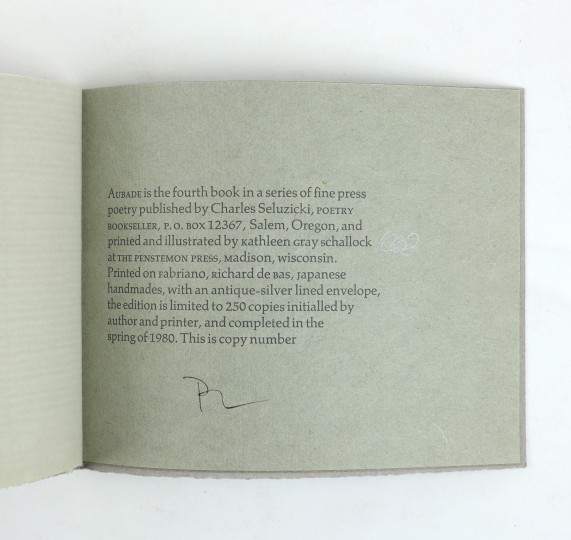 AUBADE is the fourth book in a series of fine press
poetry published by Charles Seluzicki, POETRY
BOOKSELLER, P. O. BOX 12367, Salem, Oregon, and
printed and illustrated by Kathleen Gray Schallock
at THE PENSTEMON PRESS, Madison, Wisconsin.
Printed on Fabriano, Richard de Bas, Japanese
handmades, with an antique-silver lined envelope,
the edition is limited to 250 copies initialled by
author and printer, and completed in the
spring of 1980. This is copy number